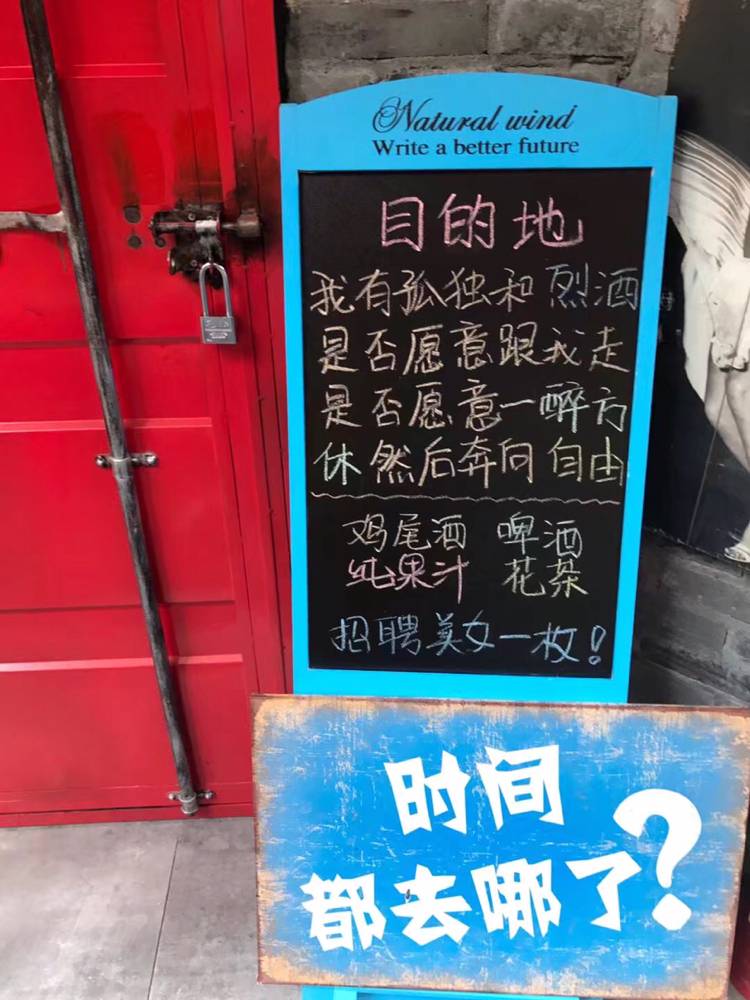 Natural wind
Write a better future
目的地
我有孤独和烈酒
是否愿意跟我走
是否愿意一醉方
休然后奔向自由
鸡尾酒 啤酒
纯果汁 花茶
招聘美女一枚!
时间
都去哪了?